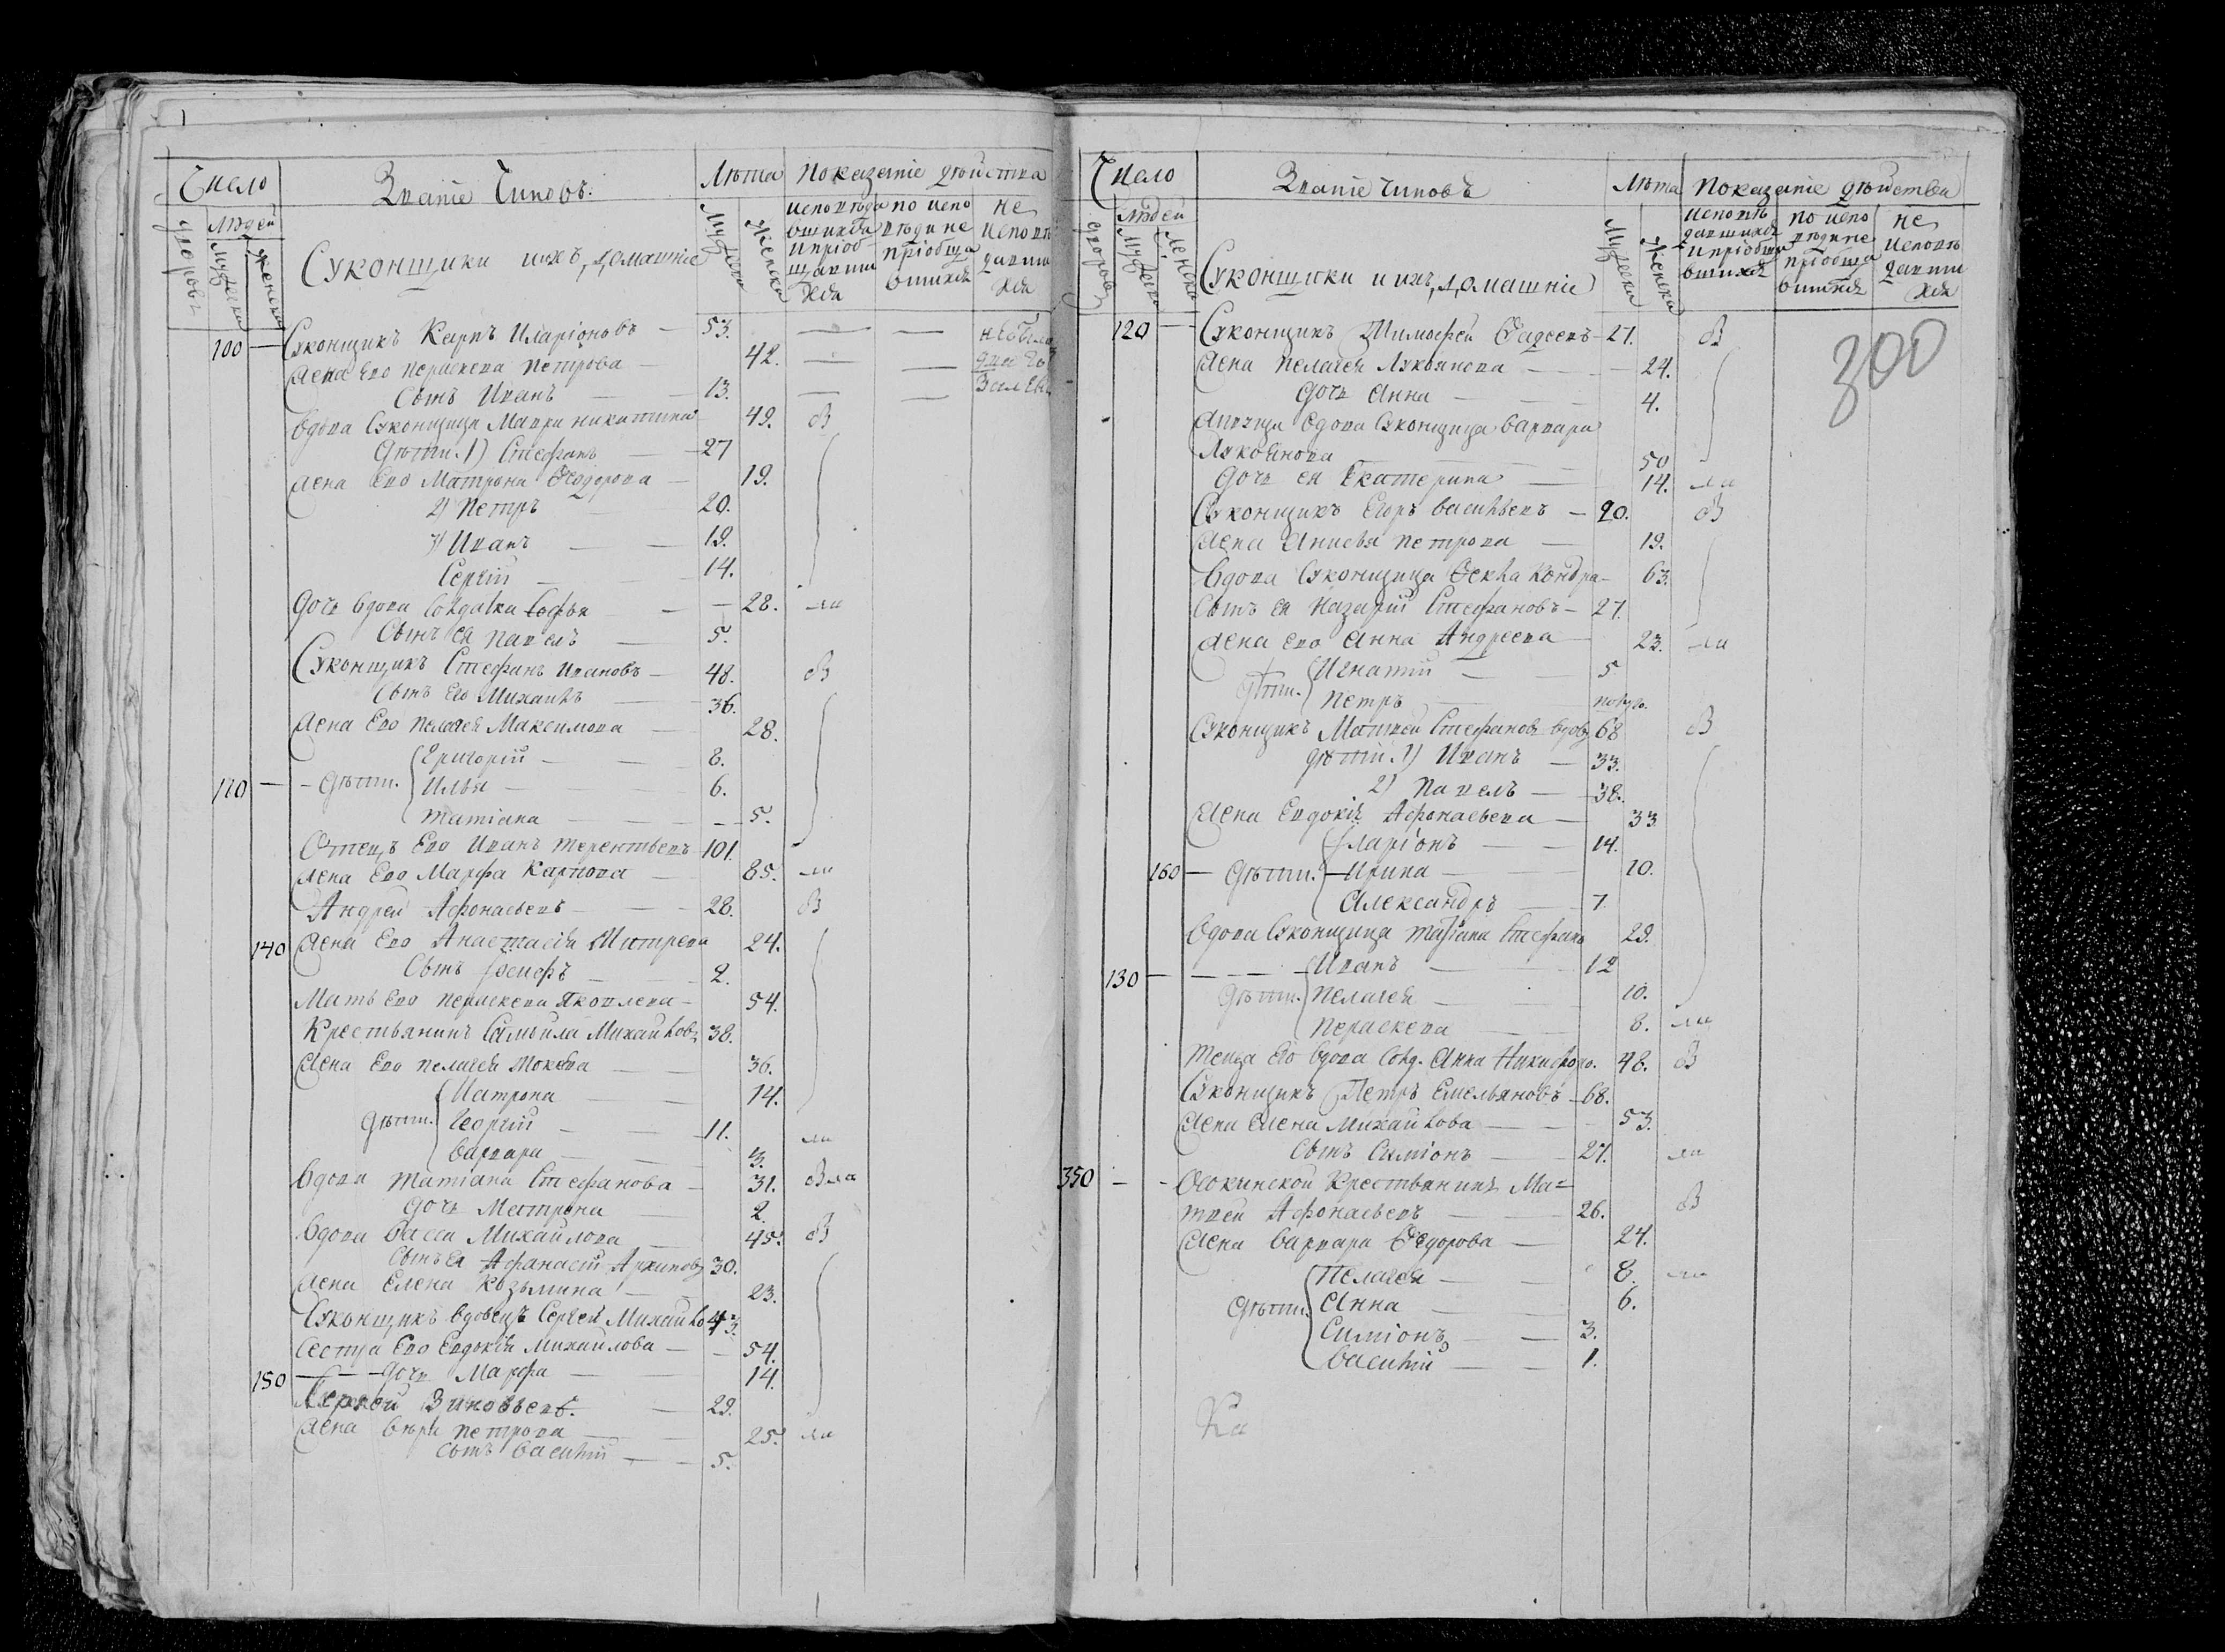 Число
Званіе Чиновъ.
Лѣта
Показаніе дѣйства
дворовъ
Людей
Мужеска
Женска
Мужеска
Женска
исповѣда
вшихся
и пріоб
щавши
хся
по испо
вѣди не
пріобща
вшихся
не
исповѣ
давши
хся
Суконщики и ихъ домашніе
100 — Суконщикъ Карпъ Иларіоновъ — 53. — —
Жена Его Параскева Петрова — 42. — —
Сынъ Иванъ — 13. — —
Вдова Суконщица Мавра никитина 49. В
Дѣти. 1) Стефанъ — 27
Жена Его Матрона Феодорова — 19.
2) Петръ 20.
3) Иванъ — 19.
Сергій — 14.
Дочь вдова Солдатка Софья — 28. ла
Сынъ Ея Павелъ — 5.
Суконщикъ Стефанъ Ивановъ — 48. В
Сынъ Его Михаилъ — 36.
Жена Его Пелагея Максимова — 28.
Григорій — 8.
110 — Дѣти. Илья — 6.
Татіана — 5.
Отецъ Его Иванъ Терентьевъ 101.
Жена Его Марфа Карпова — 85. ла
Андрей Афонасьевъ — 28. В
140 Жена Его Анастасія Дмитрева 24.
Сынъ Іосифъ — 2.
Мать Его Параскева Яковлева — 54.
Крестьянинъ Самойла Михайловъ 38.
Жена Его Пелагея Мокѣева — 36.
Матрона — 14.
Дѣти. Георгій — 11.
Варвара — 3. ла
Вдова Татіана Стефанова — 31. Вла
Дочь Матрона — 2.
Вдова Васса Михайлова — 45. В
Сынъ Ея Афанасій Архиповъ 30.
Жена Елена Козьмина — 23.
Суконщикъ вдовецъ Сергей Михайло 43.
Сестра Его Евдокія Михайлова — 54.
150 — Дочь Марфа — 14.
Сергей Зиновьевъ. — 29.
Жена Вѣра Петрова — 25. ла
Сынъ Василій — 5.
Число
Званіе чиновъ
Лѣта
Показаніе дѣйства
дворовъ
Людей
Мужеска
Женска
Мужеска
Женска
исповѣ
давшихся
и пріобща
вшихся
по испо
вѣди не
пріобща
вшихся
не
исповѣ
давши
хся
Суконщики и ихъ домашніе
300
120 — Суконщикъ Тимофей Фадеевъ 27. В
Жена Пелагея Лукоянова — 24.
Дочь Анна — 4.
Вдова Суконщица Варвара
Лукоянова 50
Дочь ея Екатерина — 14. ла
Суконщикъ Егоръ Васильевъ — 20. В
Жена Анисья Петрова — 19.
Вдова Суконщица Фекла Кондра- 63.
Сынъ Ея Назарій Стефановъ — 27.
Жена Его Анна Андреева — 23. ла
Игнатій — 5
Дѣти. Петръ — полуго.
Суконщикъ Матвей Стефановъ вдов 68 В
дѣти. 1) Иванъ — 33.
2) Павелъ — 38.
Жена Евдокія Афонасьева — 33
Ларіонъ — 14.
160 — Дѣти. Ирина — 10.
Александръ — 7
Вдова Суконщица Татіана Стефано 29.
130 — Иванъ — 12
Дѣти. Пелагея — 10.
Параскева — 8. ла
Теща Его вдова Солд. Анна Никифоро. 48. В
Суконщикъ Петръ Емельяновъ — 68.
Жена Елена Михайлова — 53.
Сынъ Симіонъ — 27. ла
350 — Осокинской Крестьянинъ Ма=
твей Афонасьевъ — 26. В
Жена Варвара Федорова — 24.
Пелагея — 8. ла
Дѣти. Анна — 6.
Симіонъ — 3.
Василій — 1.
Ка